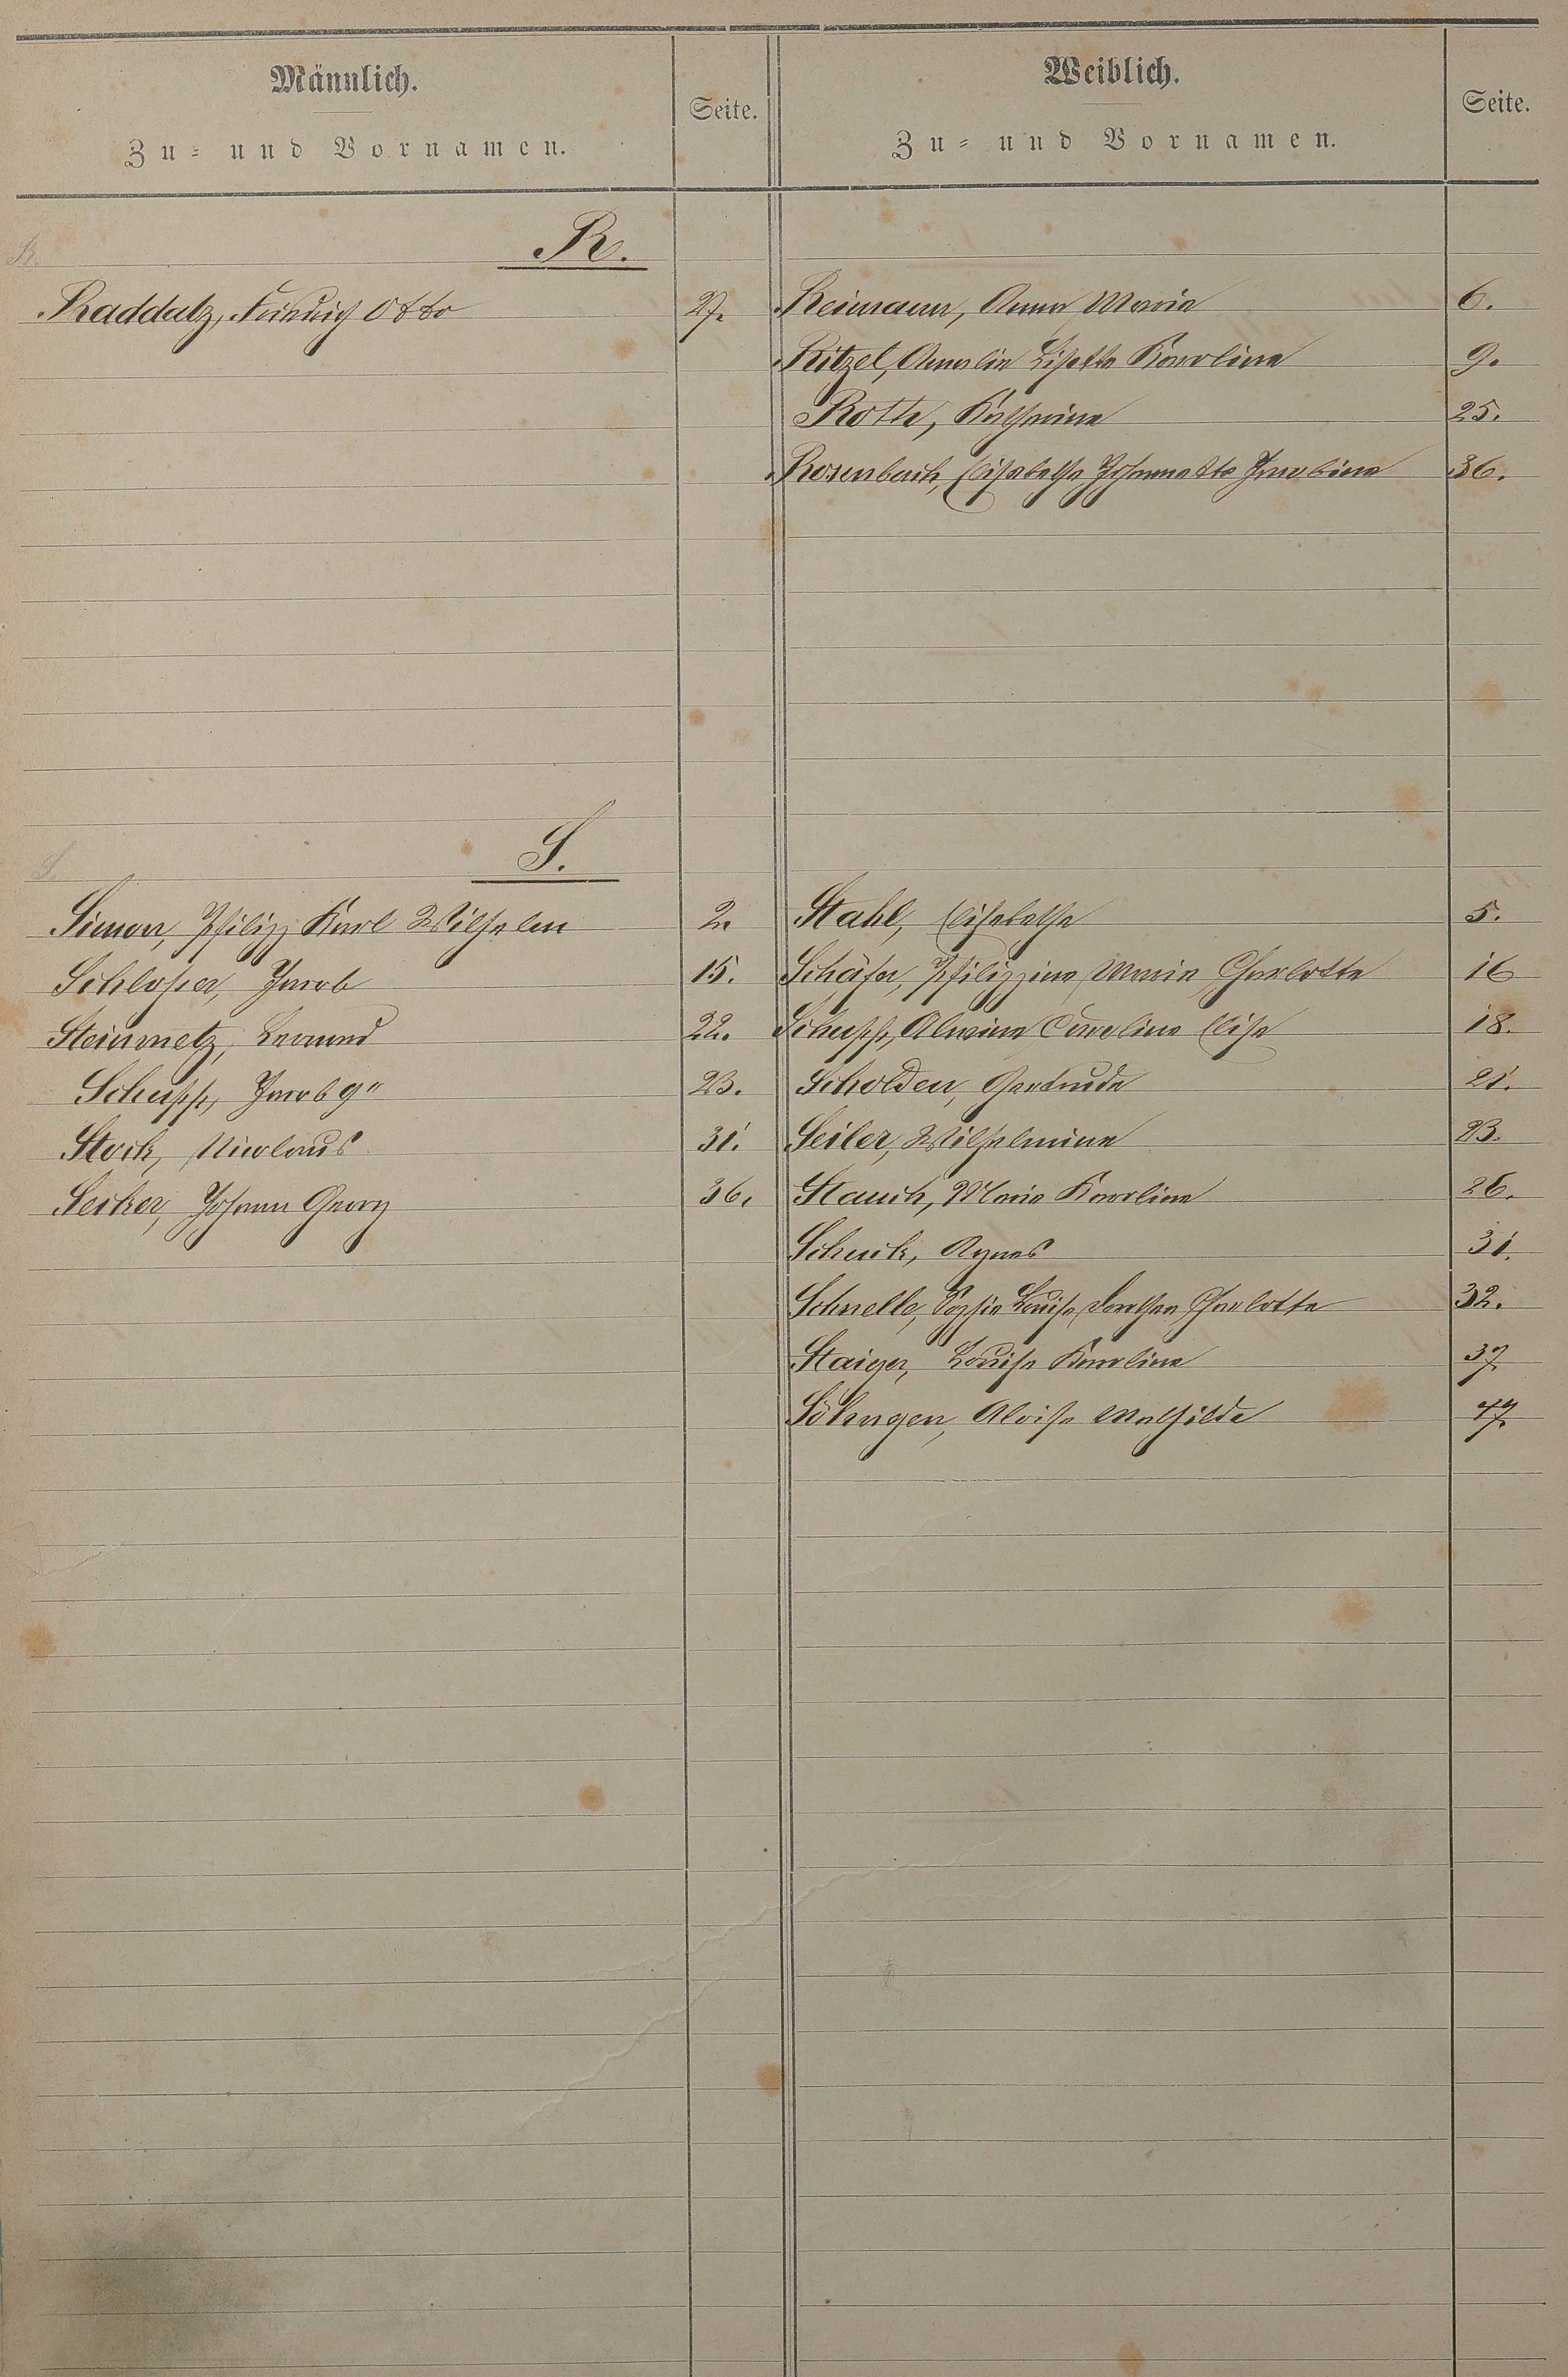 Männlich.
Zu- und Vornamen.
Seite.
Weiblich.
Zu- und Vornamen.
Seite.
R.
R.
Raddatz, Friedrich Otto 27.
Reimann, Anna Maria 6.
Ritzel, Amalie Lisette Karoline 9.
Roth, Katharine 25.
Rosenbach, Elisabetha Johannette Jacobine 36.
S.
S.
Simon, Philipp Karl Wilhelm 2.
Schlosser, Jacob 15.
Steinmetz, 22.
Schupp, Jacob 9" 23.
Stock, Nicolaus 31.
Secker, Johann Georg 36.
Stahl, Elisabetha 5.
Schäfer, Philippine Maria Charlotte 16
Schupp, Alwine Caroline Elise 18.
Scholden, Gertrude 21.
Seiler, Wilhelmine 23.
Stauch, Maria Karoline 26.
Schuck, Agnes 31.
Schnelle, Sophie Louise Dorothea Charlotte 32.
Staiger, Louise Karoline 37.
Söhngen, Aloise Mathilde 47.